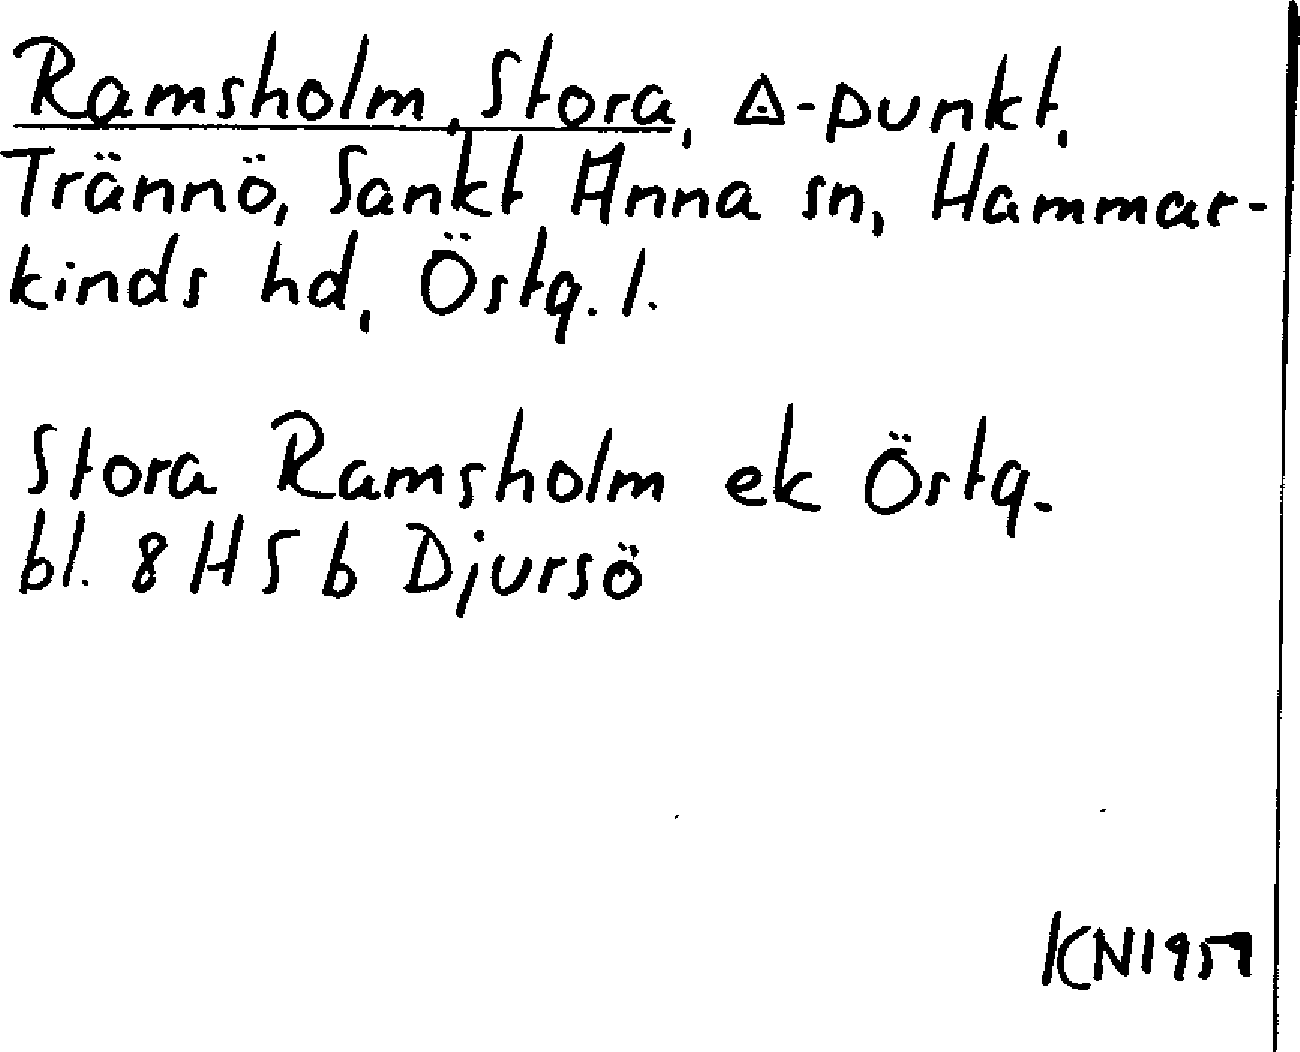 Ramsholm, Stora, ◬-punkt,
Trännö, Sankt Anna sn, Hammar-
kinds hd, Östg. l.
Stora Ramsholm ek Östg.
bl. 8 H 5 b Djursö
KN 1959